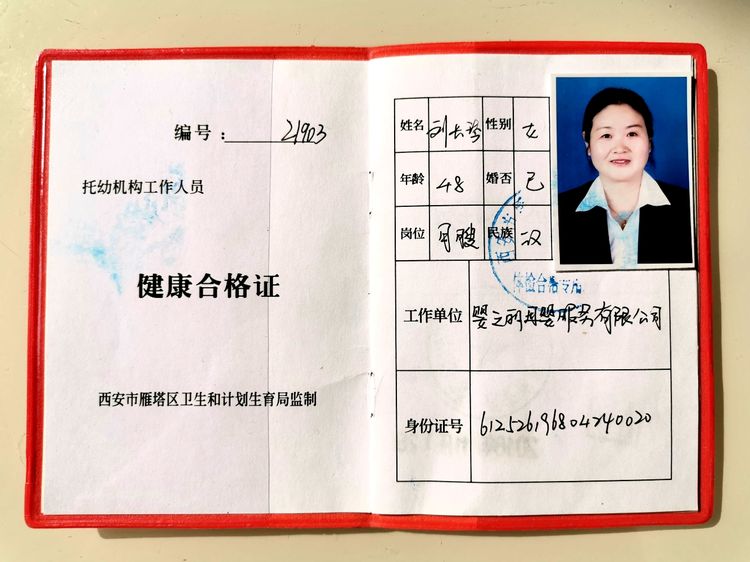 编号：21903
托幼机构工作人员
健康合格证
西安市雁塔区卫生和计划生育局监制
姓名 刘长 性别 女
年龄 48 婚否 已
岗位 月嫂 民族 汉
体检合格专用
工作单位 婴之 母婴服务有限公司
身份证号 612526196804240020